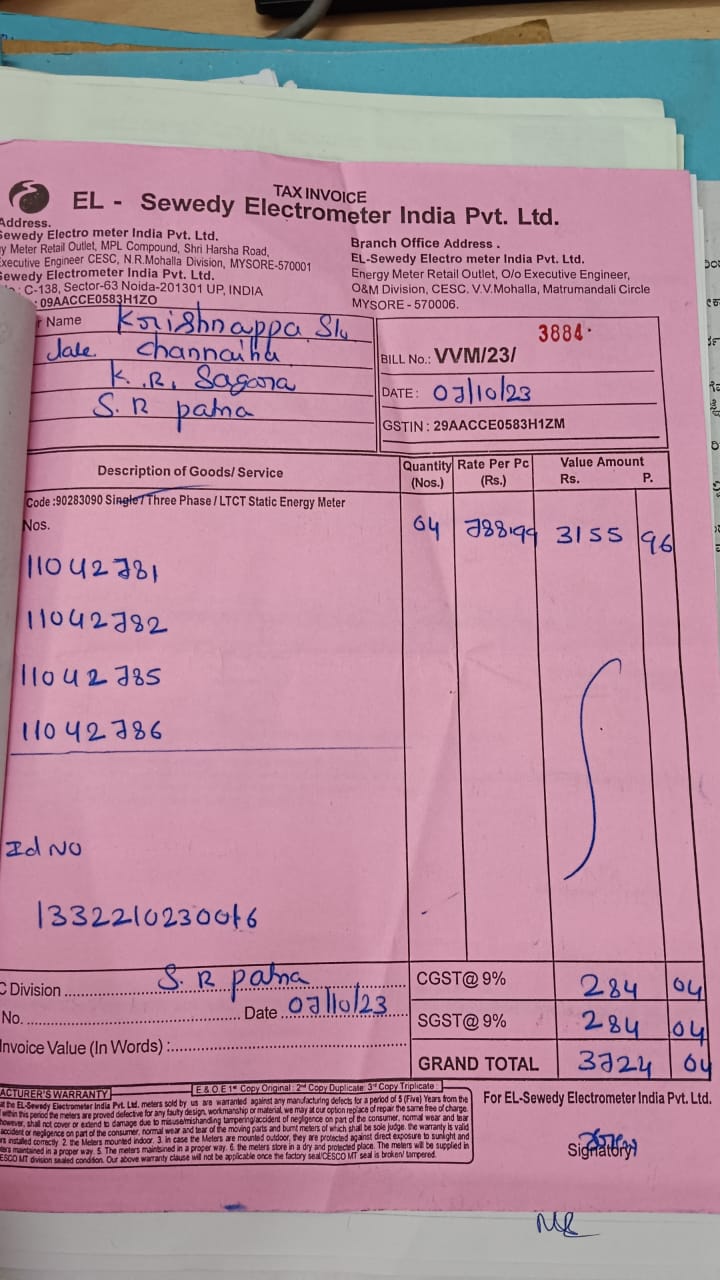 TAX INVOICE
EL - Sewedy Electrometer India Pvt. Ltd.
Address.
Sewedy Electro meter India Pvt. Ltd.
y Meter Retail Outlet, MPL Compound, Shri Harsha Road,
Executive Engineer CESC, N.R.Mohalla Division, MYSORE-570001
Sewedy Electrometer India Pvt. Ltd.
C-138, Sector-63 Noida-201301 UP, INDIA
: 09AACCE0583H1ZO
Branch Office Address .
EL-Sewedy Electro meter India Pvt. Ltd.
Energy Meter Retail Outlet, O/o Executive Engineer,
O&M Division, CESC. V.V.Mohalla, Matrumandali Circle
MYSORE - 570006.
r Name Krishnappa S/o
late. Channaiha
K. R. Sagara
S. R patna
3884
BILL No.: VVM/23/
DATE : 07/10/23
GSTIN : 29AACCE0583H1ZM
Description of Goods/ Service Quantity (Nos.) Rate Per Pc (Rs.) Value Amount Rs. P.
Code :90283090 Single / Three Phase / LTCT Static Energy Meter
Nos. 04 788.99 3155 96
11042781
11042782
11042785
11042786
Id NO
C Division S. R patna
No. Date 07/10/23
Invoice Value (In Words) :
CGST@ 9% 284 04
SGST@ 9% 284 04
GRAND TOTAL 3724 04
E & O E 1st Copy Original : 2nd Copy Duplicate 3rd Copy Triplicate :
ACTURER'S WARRANTY
all the EL-Sewedy Electrometer India Pvt. Ltd. meters sold by us are warranted against any manufacturing defects for a period of 5 (Five) Years from the
within this period the meters are proved defective for any faulty design, workmanship or material, we may at our option replace of repair the same free of charge.
however, shall not cover or extend to damage due to misuse/mishanding tampering/accident of negligence on part of the consumer, normal wear and tear
accident or negligence on part of the consumer, normal wear and tear of the moving parts and burnt meters of which shall be sole judge. the warranty is valid
rs installed correctly 2. the Meters mounted indoor. 3. in case the Meters are mounted outdoor, they are protected against direct exposure to sunlight and
ters maintained in a proper way. 5. The meters maintsined in a proper way. 6. the meters store in a dry and protected place. The meters will be supplied in
ESCO MT division sealed condition. Our above warranty clause will not be applicable once the factory seal/CESCO MT seal is broken/ tampered.
For EL-Sewedy Electrometer India Pvt. Ltd.
Signatory